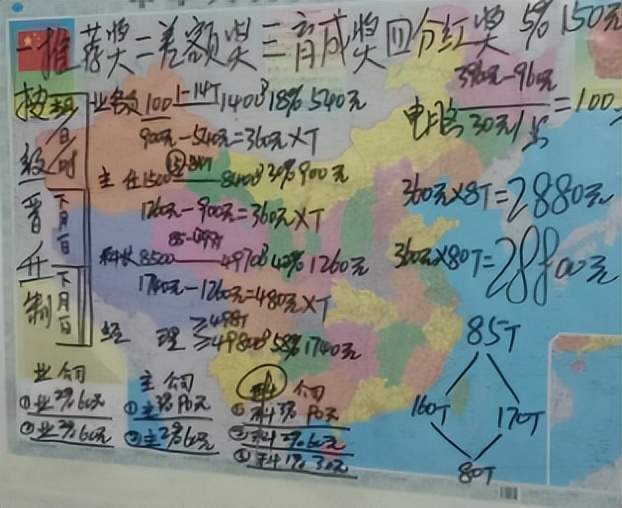 一推荐奖二差额奖三育成奖四分红奖 5% 150元
按 级 晋 升 制
业务员 100 1-14T 1400 18% 540元
900元-540元=360元×T
主任 1500 8400 30% 900元
1260元-900元=360元×T
科长 8500 49700 42% 1260元
1740元-1260元=480元×T
经 理 ≥498T ≥49800 58% 1740元
下月
下月
电脑 30元/
=100
360元×8T=2880元
360元×80T=28800元
业 主
①业2%60元
②业2%60元
①主3%90元
②主2%60元
①科3%90元
②科2%60元
③科1%30元
85T
160T 170T
80T